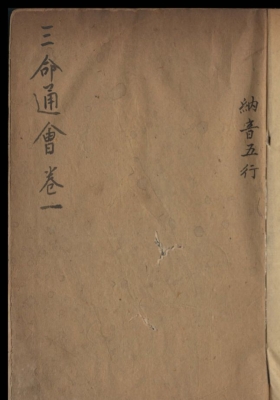 三命通會卷一
納音五行